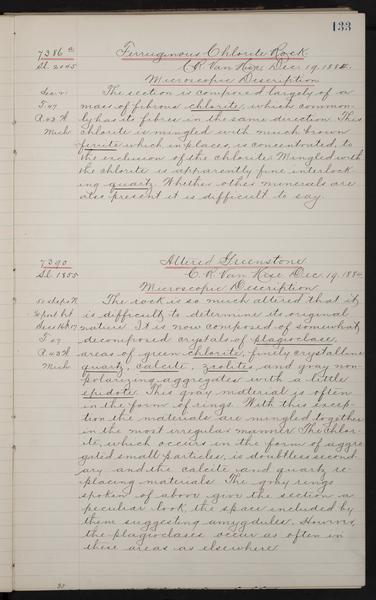 133
7386 a Ferruginous Chlorite Rock
Sl. 2045 C.R. Van Hise, Dec. 19, 1884.
Microscopic Description
The section is composed largely of a
T 47 mass of fibrous chlorite, which common-
ly has its fibres in the same direction. This
Mich chlorite is mingled with much brown
ferrite which in places, is concentrated, to
the exclusion of the chlorite. Mingled with
the chlorite is apparently fine interlock-
ing quartz. Whether other minerals are
also present it is difficult to say.
7390 Altered Greenstone
Sl. 1855 C. R. Van Hise Dec. 19. 1884
Microscopic Description
The rock is so much altered that it
is difficult to determine its original
nature. It is now composed of somewhat
T 47 decomposed crystals of plagioclase,
areas of green chlorite, finely crystalline
Mich quartz, calcite, zeolites and gray non-
polarizing aggregates with a little
epidote. This gray material is often
in the form of rings. With this excep-
tion the materials are mingled together
in the most irregular manner. The chlor-
ite, which occurs in the form of aggre
gated small particles, is doubtless second
ary and the calcite and quartz re-
placing materials. The gray rings
spoken of above give the section a
peculiar look, the space included by
them suggesting amygdules. However,
the plagioclases occur as often in
these areas as elsewhere